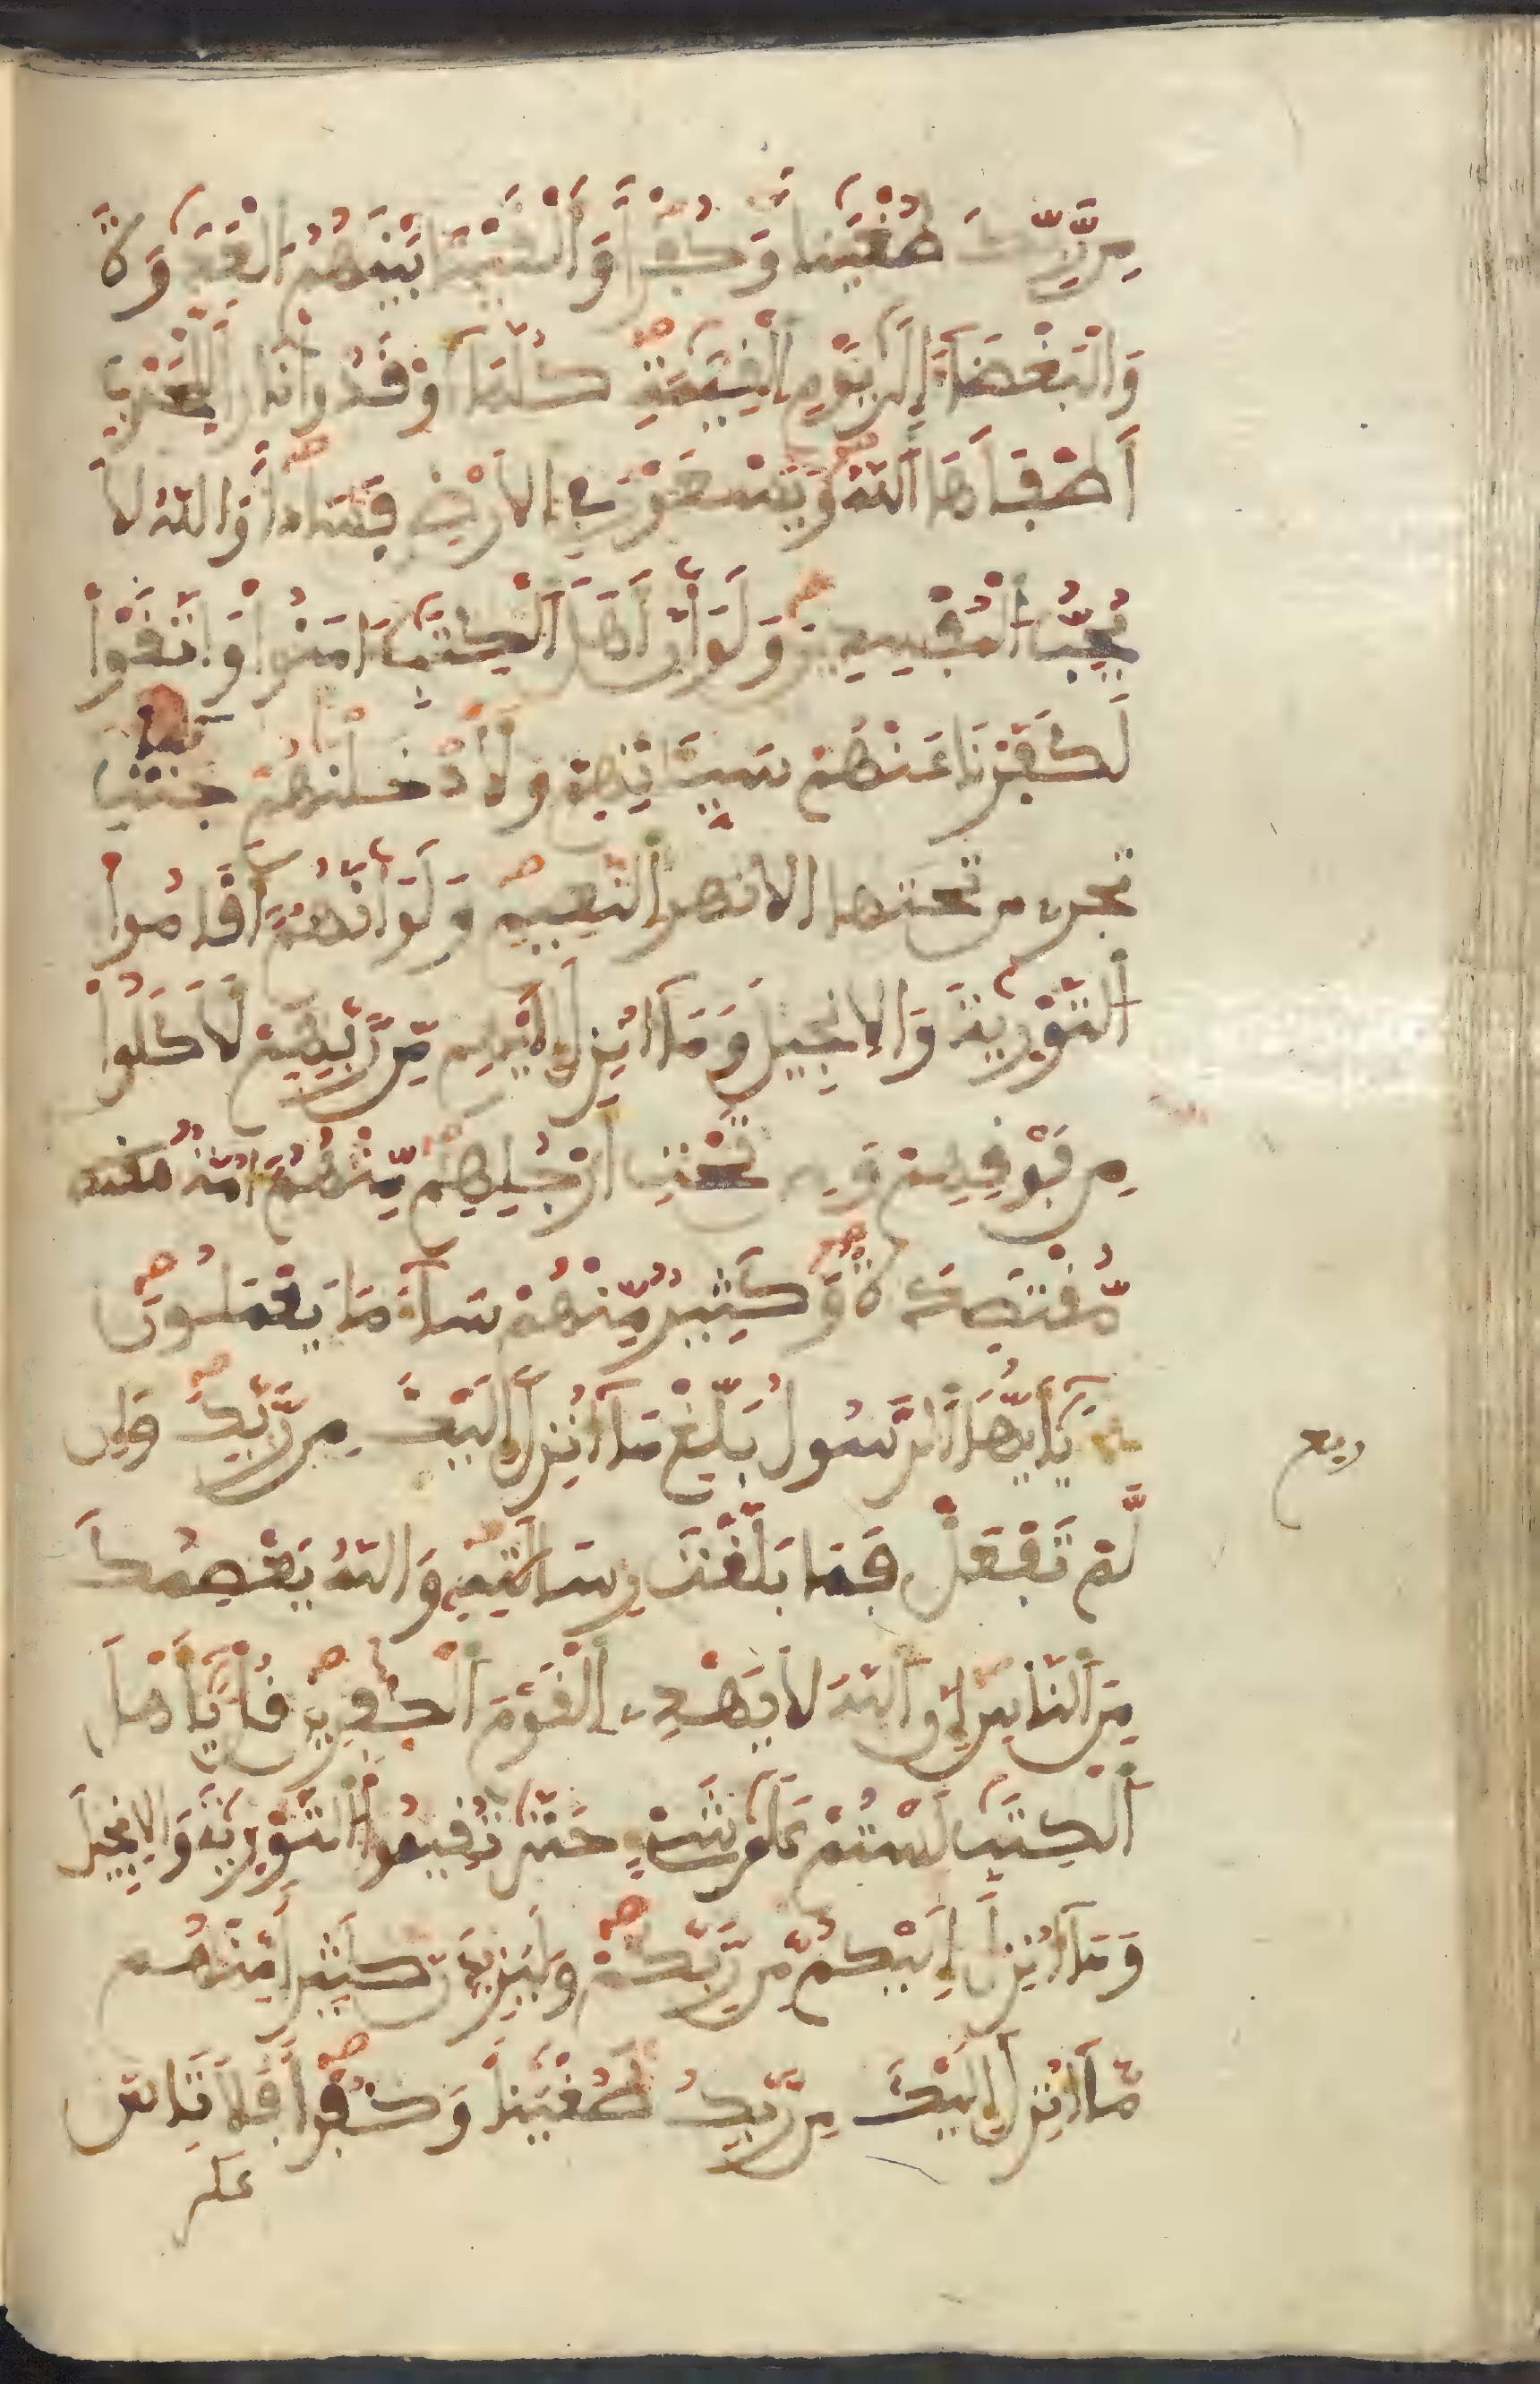 مِن رَّبِّكَ طُغْيَٰنا وَكُفْراً وَأَلْقَيْنَا بَيْنَهُمُ الْعَدَٰوَةَ
وَالْبَغْضَآءَ إِلَىٰ يَوْمِ الْقِيَٰمَةِ كُلَّمَآ أَوْقَدُواْ نَارا لِّلْحَرْبِ
أَطْفَأَهَا اَللَّهُ وَيَسْعَوْنَ فِي اِلَارْضِ فَسَاداً وَاللَّهُ لَا
يُحِبُّ اُلْمُفْسِدِينَ وَلَوَ اَنَّ أَهْلَ اَلْكِتَٰبِ ءَامَنُواْ وَاتَّقَوْاْ
لَكَفَّرْنَا عَنْهُمْ سَيِّـَٔاتِهِمْ وَلَأَدْخَلْنَٰهُمْ جَنَّٰتِ
تجرى من تحتها الانهر النَّعِيمِ وَلَوَ اَنَّهُمُۥٓ أَقَامُواْ
اُلتَّوْرَيٰةَ وَالِانجِيلَ وَمَآ أُنزِلَ إِلَيْهِم مِّن رَّبِّهِمْ لَأَكَلُواْ
مِن فَوْقِهِمْ وَمِن تَحْتِ أَرْجُلِهِم مِّنْهُمُۥٓ أُمَّةٌ مقتصد
مُّقْتَصِدَةٌ وَكَثِيرٌ مِّنْهُمْ سَآءَ مَا يَعْمَلُونَ
يَٰٓأَيُّهَا اَلرَّسُولُ بَلِّغْ مَآ أُنزِلَ إِلَيْكَ مِن رَّبِّكَ وَإِن
لَّمْ تَفْعَلْ فَمَا بَلَّغْتَ رِسَالَٰتِهِۦ وَاللَّهُ يَعْصِمُكَ
مِنَ اَلنَّاسِ إِنَّ اَللَّهَ لَا يَهْدِي اِلْقَوْمَ اَلْكَٰفِرِينَ قُلْ يَٰٓأَهْلَ
اَلْكِتَٰبِ لَسْتُمْ عَلَىٰ شَيْءٍ حَتَّىٰ تُقِيمُواْ اُلتَّوْرَيٰةَ وَالِانجِيلَ
وَمَآ أُنزِلَ إِلَيْكُم مِّن رَّبِّكُمْ وَلَيَزِيدَنَّ كَثِيراً مِّنْهُم
مَّآ أُنزِلَ إِلَيْكَ مِن رَّبِّكَ طُغْيَٰناً وَكُفْراً فَلَا تَاسَ
على
ربع